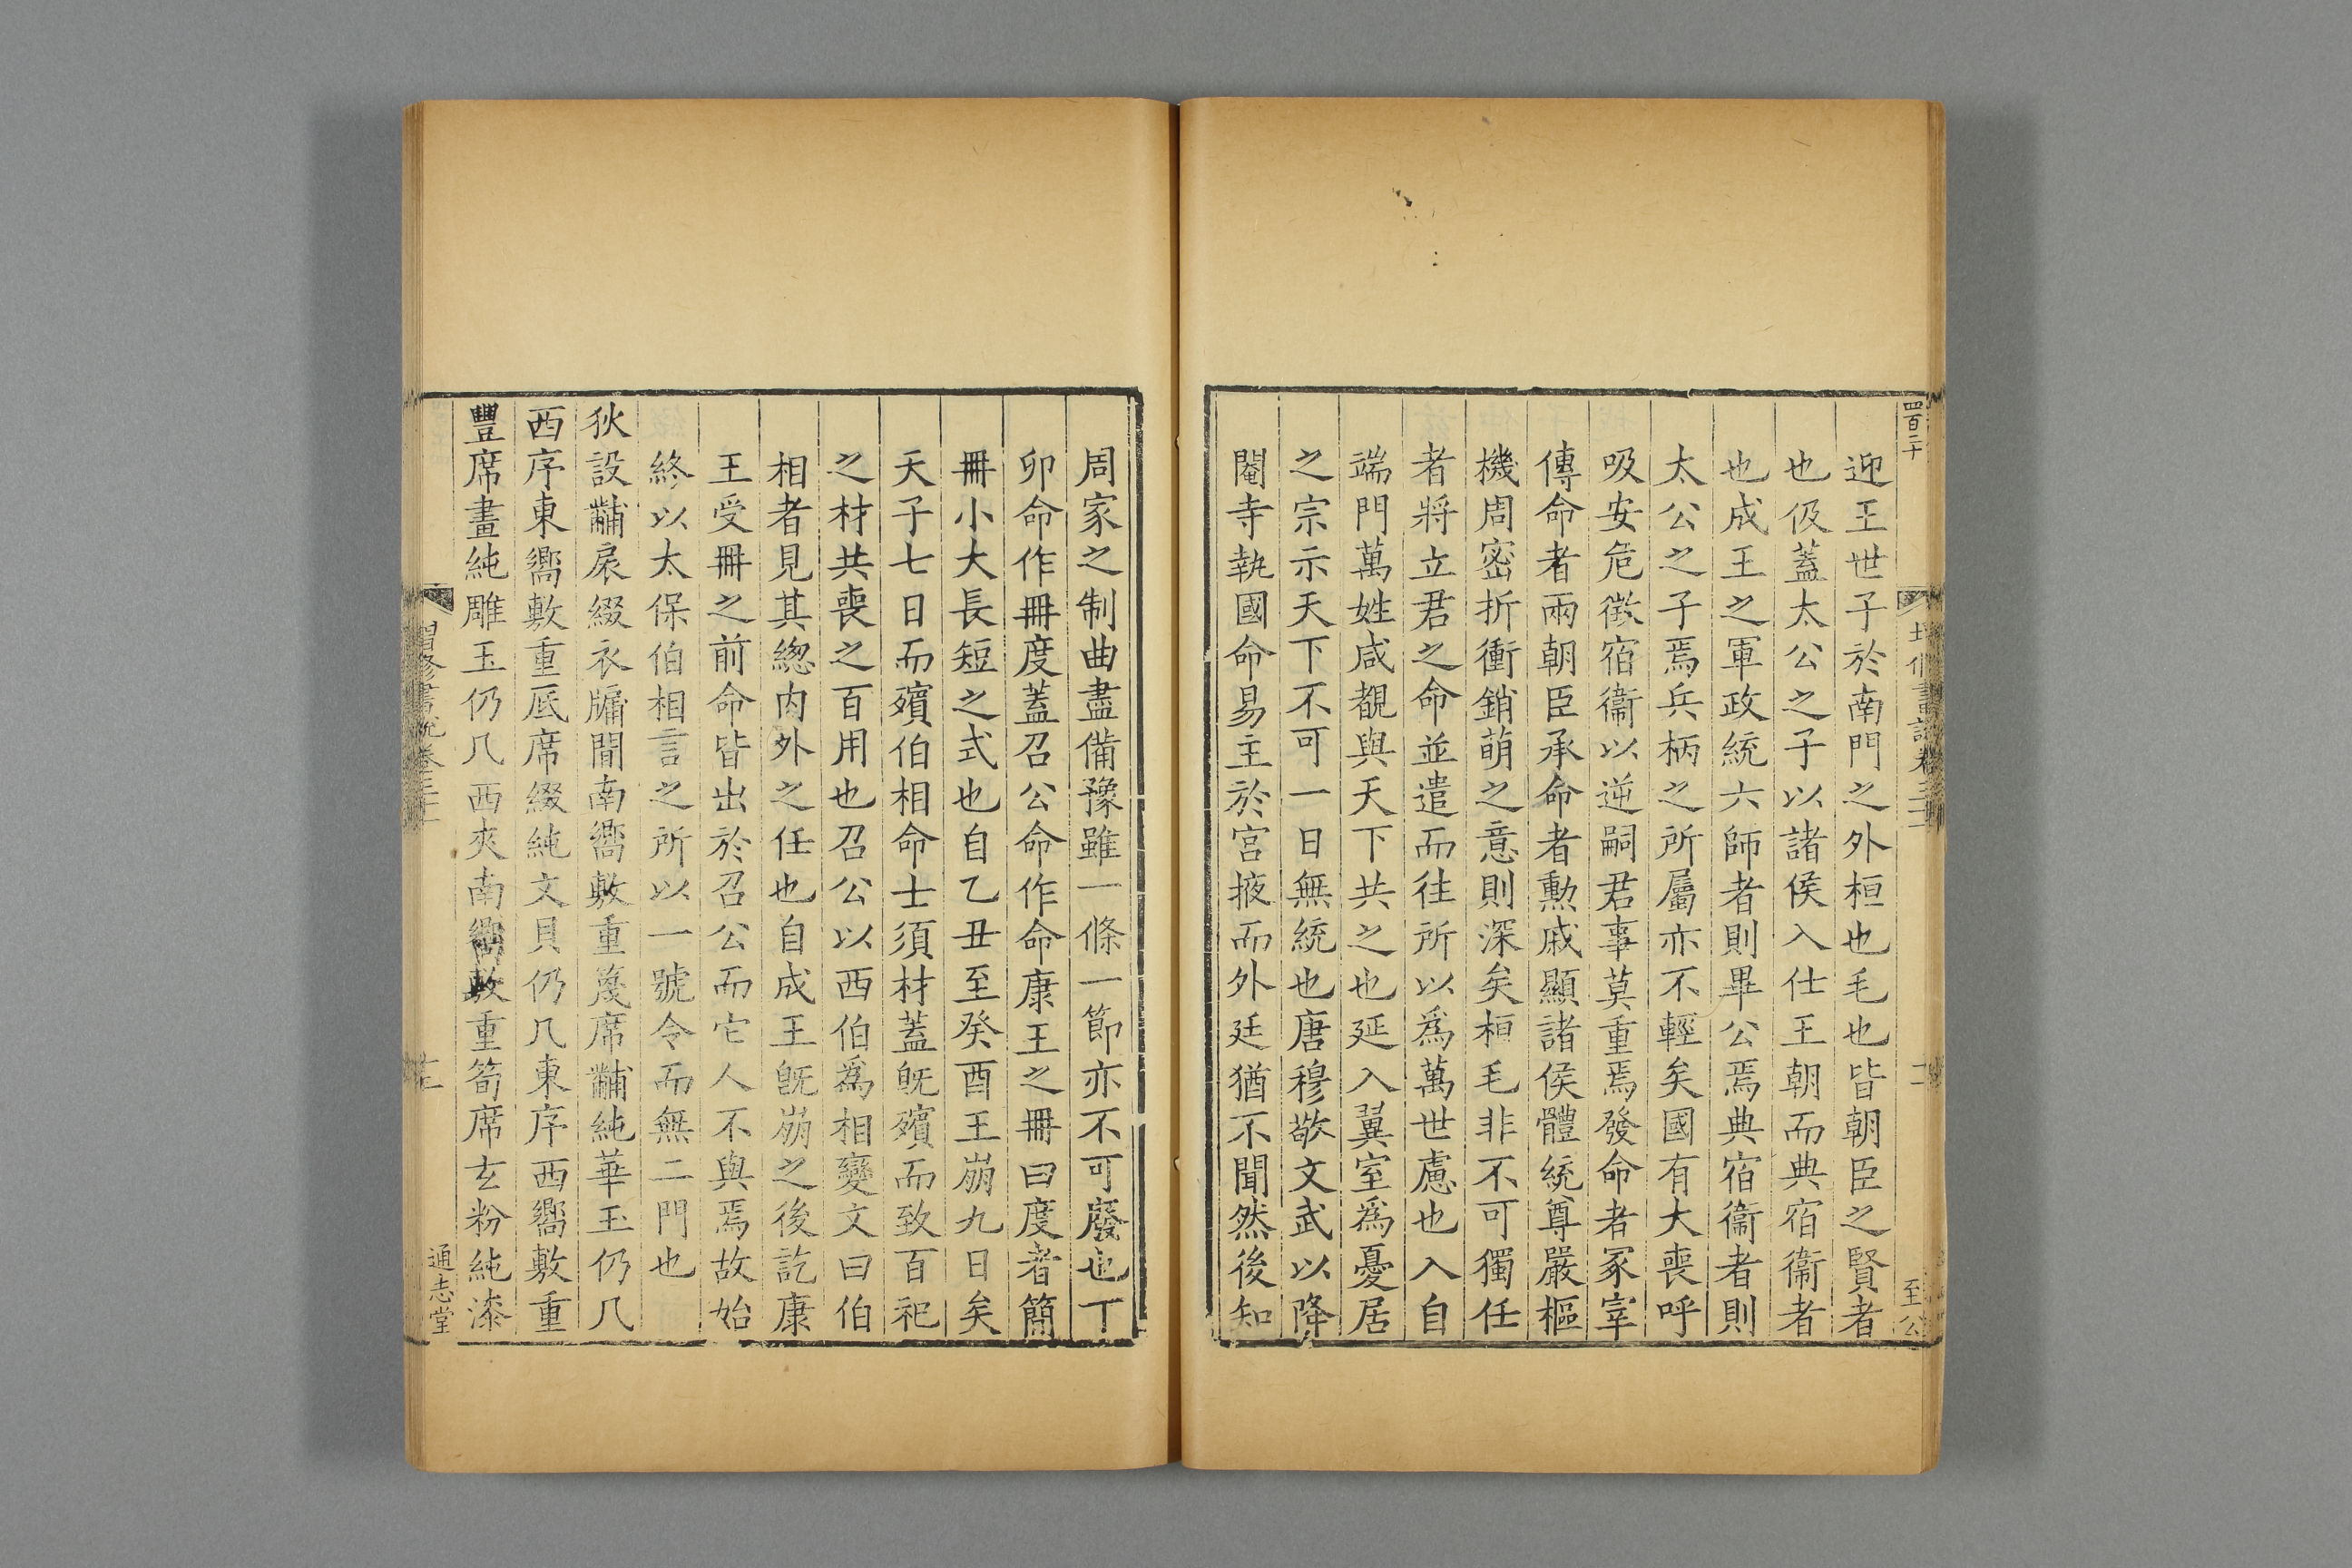 四百二十
迎王世子於南門之外桓也毛也皆朝臣之賢者
也伋蓋太公之子以諸侯入仕王朝而典宿衞者
也成王之軍政統六師者則畢公焉典宿衞者則
太公之子焉兵柄之所屬亦不輕矣國有大喪呼
吸安危徴宿衞以逆嗣君事莫重焉發命者冢宰
傳命者兩朝臣承命者勲戚顯諸侯體統尊嚴樞
機周密折衝銷萌之意則深矣桓毛非不可獨任
者將立君之命並遣而徃所以爲萬世慮也入自
端門萬姓咸覩與天下共之也延入翼室爲憂居
之宗示天下不可一日無統也唐穆敬文武以降
閹寺執國命易主於宫掖而外廷猶不聞然後知
至公
周家之制曲盡備豫雖一條一節亦不可廢也丁
卯命作冊度蓋召公命作命康王之冊曰度者簡
冊小大長短之式也自乙丑至癸酉王崩九日矣
天子七日而殯伯相命士須材蓋旣殯而致百祀
之材共喪之百用也召公以西伯爲相變文曰伯
相者見其緫内外之任也自成王旣崩之後訖康
王受冊之前命皆出於召公而它人不與焉故始
終以太保伯相言之所以一號令而無二門也
狄設黼扆綴衣牖間南嚮敷重篾席黼純華玉仍几
西序東嚮敷重厎席綴純文貝仍几東序西嚮敷重
豐席畫純雕玉仍几西夾南嚮敷重筍席玄粉純漆
增修書說卷三十一
通志堂